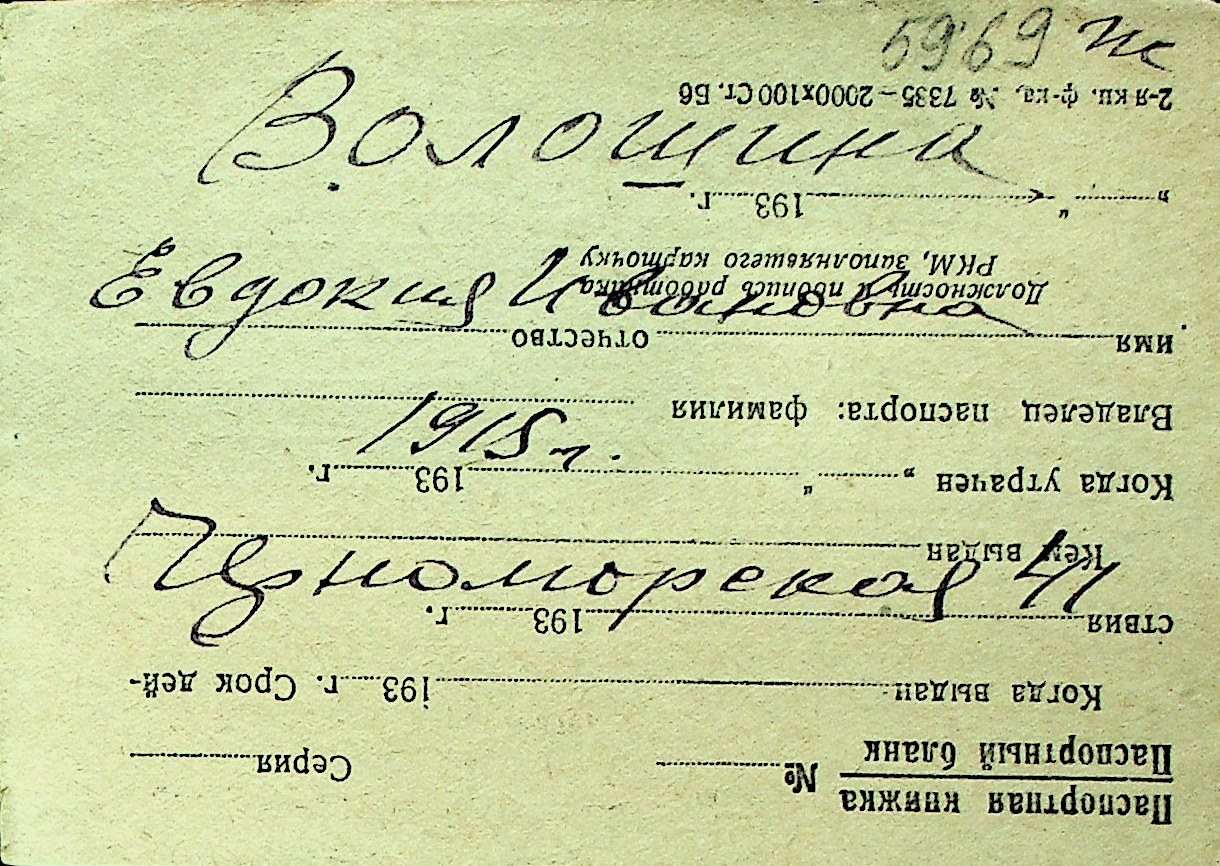 5969 ж
Волошина
Евдокия Ивановна
1915 г.
Черноморская 41
Паспортная книжка
Паспортный бланк № Серия
Когда выдан 193 г. Срок дей-
ствия 193 г.
Кем выдан
Когда утрачен „ “ 193 г.
Владелец паспорта: фамилия
имя отчество
Должность и подпись работника
РКМ, заполнявшего карточку
„ “ 193 г.
2-я кн. ф-ка, № 7335 – 2000х100 Ст. Б6